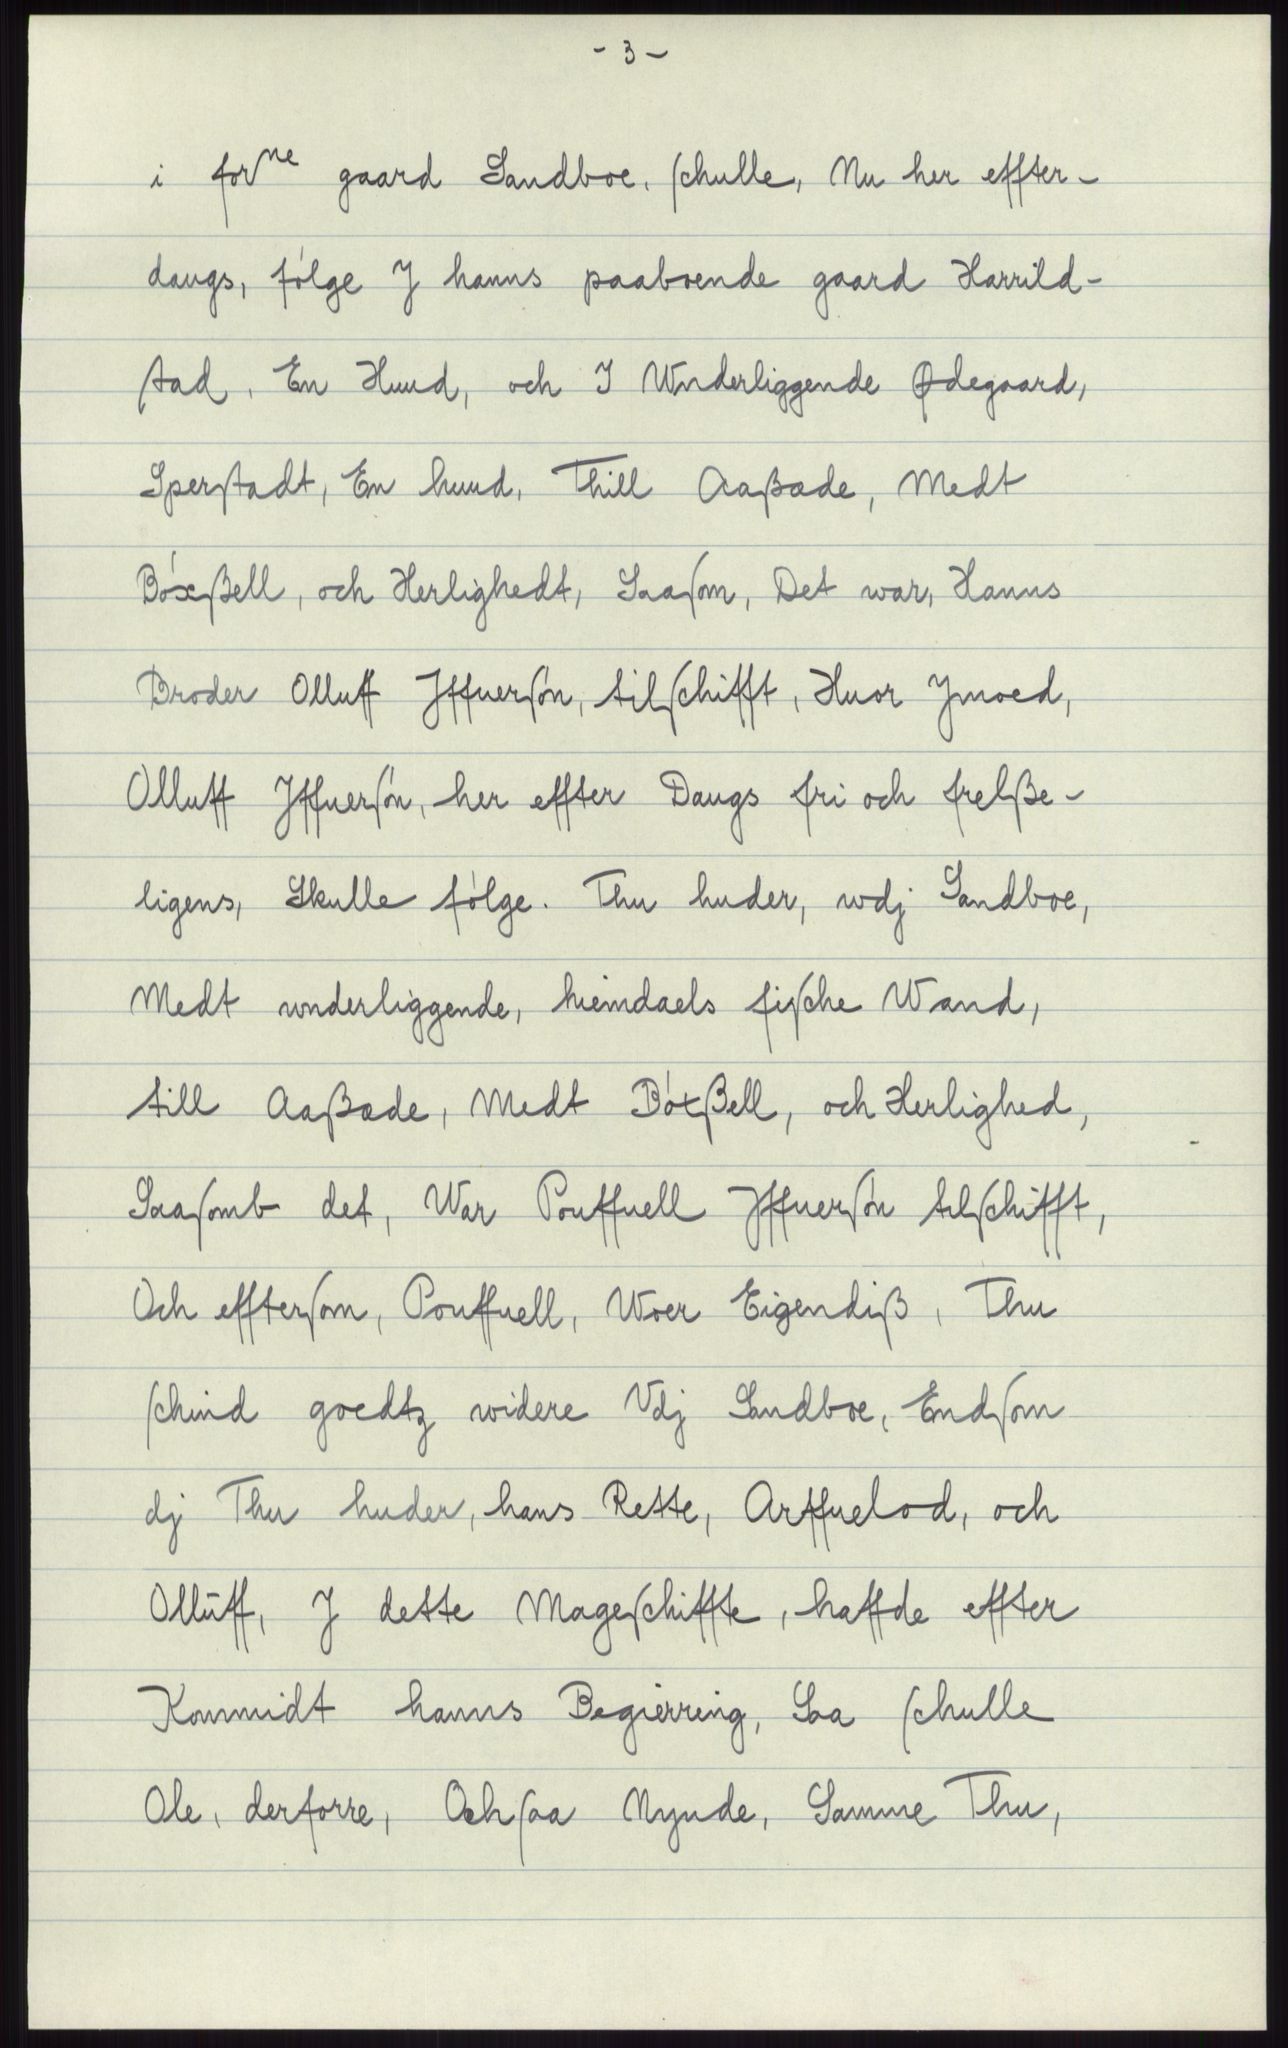 - 3 -
i forne gaard Sandboe, schulle, Nu her effter-
daugs, følge J hanns paaboende gaard Harrild-
stad, En Huud, och I Wnderliggende Ødegaard,
Sperstadt, En huud, Thill Aaßæde, Medt
Bóxßell, och Herlighedt, Saasom, Det war, Hanns
Broder Olluff Jffuersøn, tilschifft, Huor Jmoed,
Olluff Jffuersøn, her effter Daugs fri och frelße-
ligens, Skulle følge. Thu huder, wdj Sandboe,
Medt wnderliggende, hiemdaels fische Wand,
till Aaßæde, Medt Bóxßell, och Herlighed,
Saasomb det, War Pouffuell Jffuersøn telschifft,
Och efftersom, Pouffuell, Woer Eigendiß, Thu
schind goedtz widere Vdj Sandboe, Endsom
dj Thu huder, hans Rette, Arffuelod, och
Ollūff, J dette Mageschiffte, haffde effter
Kommidt hanns Begierring, Saa schulle
Ole, derforre, Ochsaa Nynde, Samme Thu,